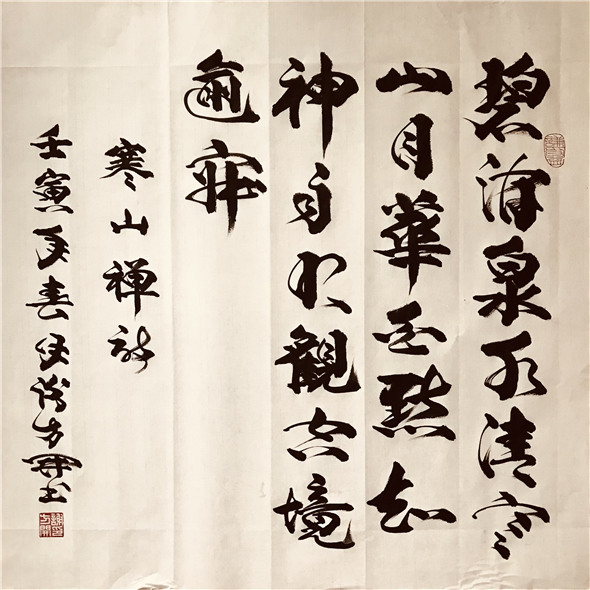 碧澗泉水清寒
山月華白默知
神自明觀空境
逾寂
寒山禅詩
壬寅年春 方開书